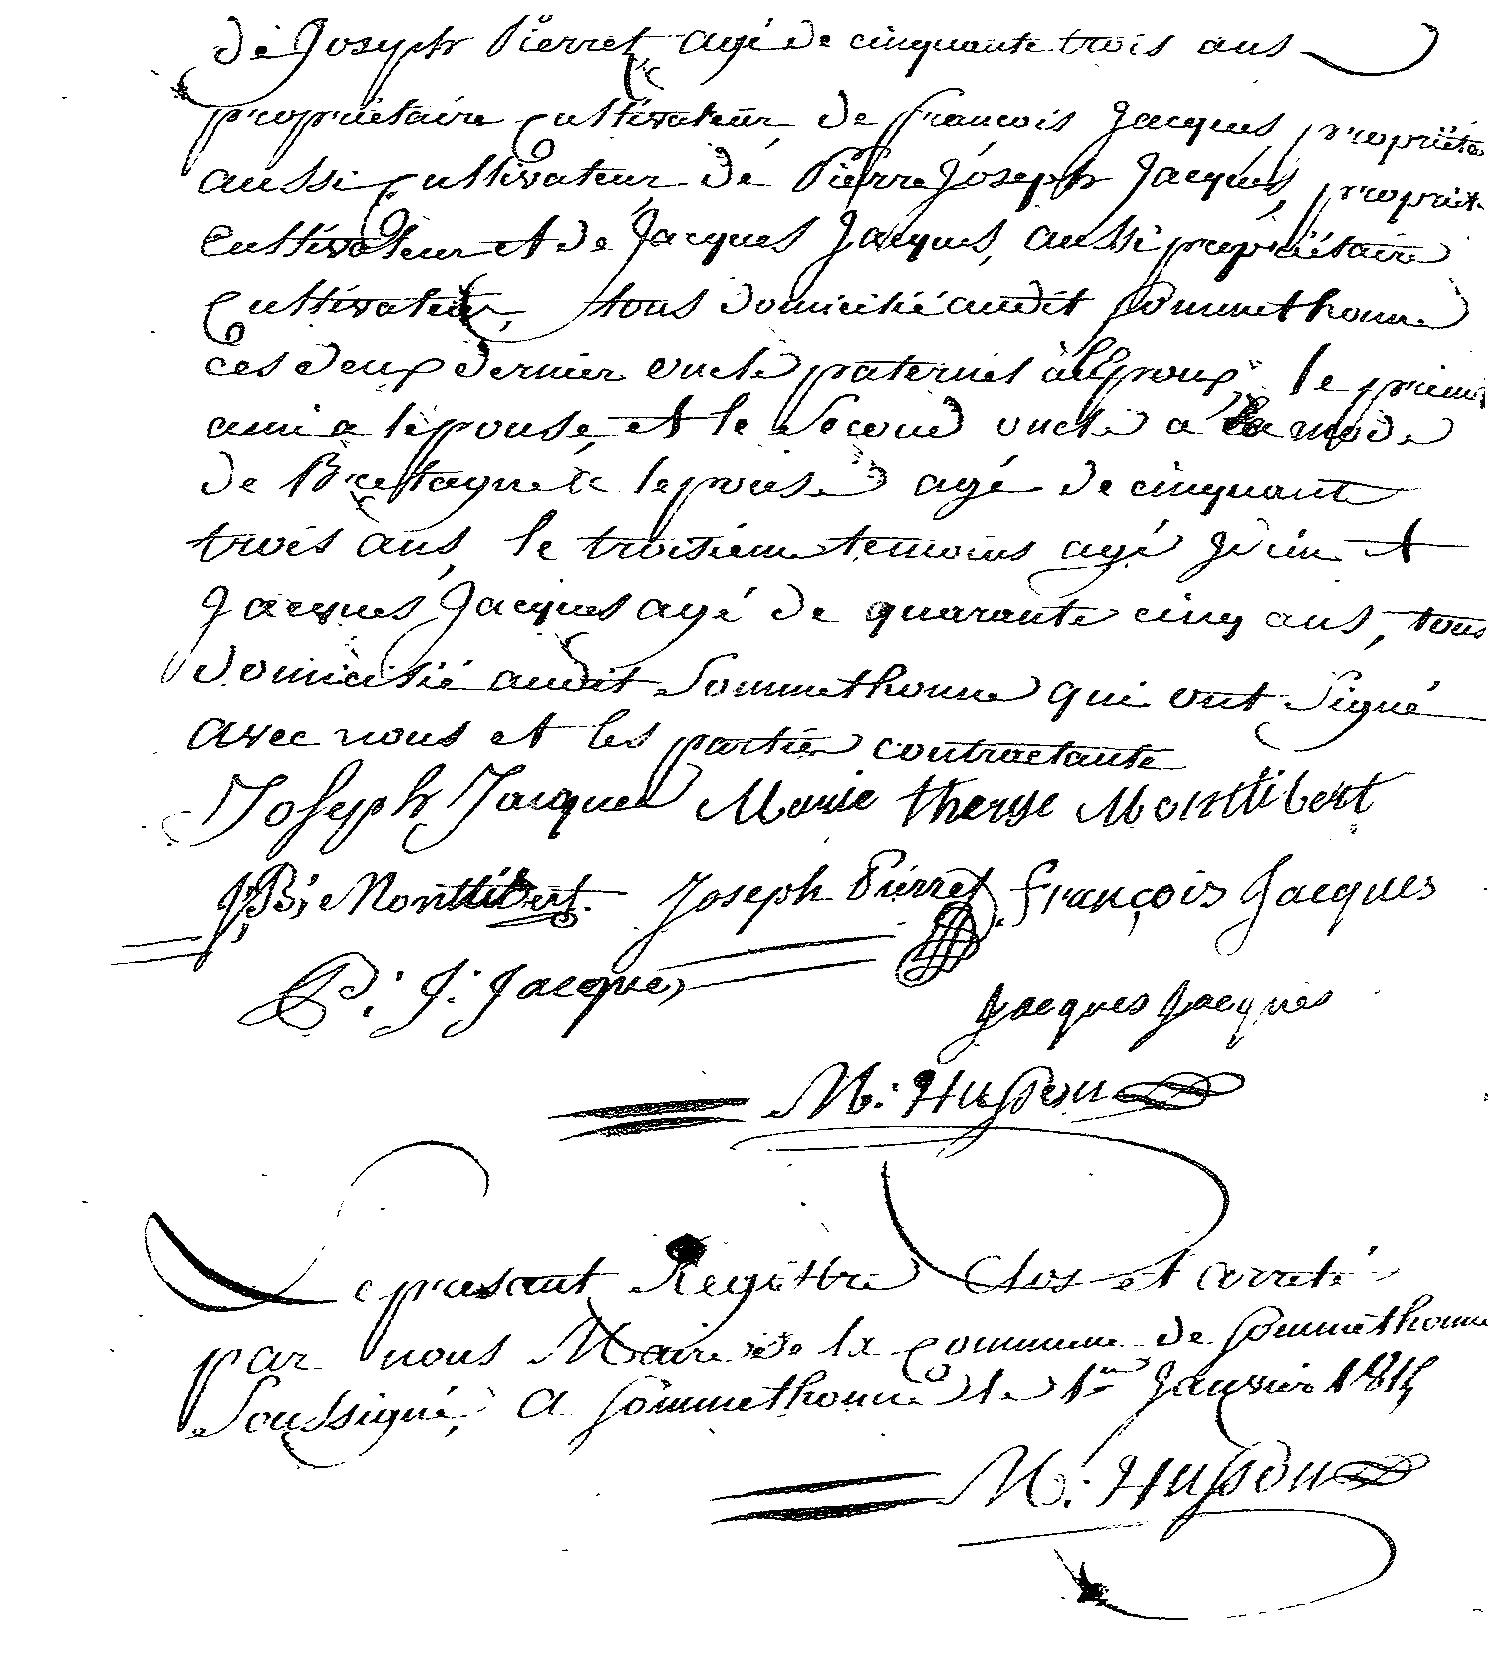 de Joseph Pierret agé de cinquante trois ans
propriétaire Cultivateur, de François Jacques propriéta
aussi Cultivateur de Pierre Joseph Jacques, propriét
Cultivateur et de Jacques Jacques, aussi propriétaire
Cultivateur, tous domicilié audit Sommethonne
ces deux dernier oncle paternel à l'Epoux, le premi
ami a lépouse, et le Second oncle a la mode
de Bretagne de lepouse agé de cinquant
trois ans, le troisieme temoins agé et
Jacques Jacques agé de quarante cinq ans, tous
domicilié audit Sommethonne qui ont Signé
avec nous et les partie contractante
Joseph Jacques Marie therese Montlibert
J,B, Montlibert. Joseph Pierret François Jacques
P. J. Jacques
Jacques Jacques
M. Husson
Le présant Régistre Clos et arreté
par nous Maire de la Commune de Sommethonne
Soussigné, A Sommethonne le 1er Janvier 1815
M. Husson